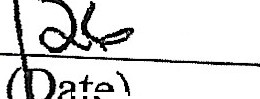 /26
(Date)